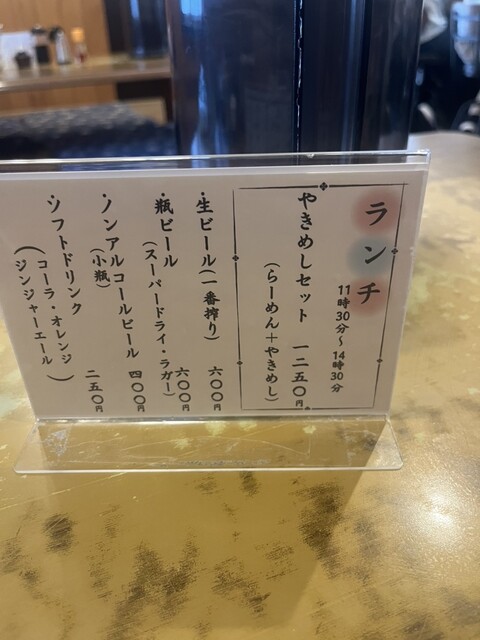 ランチ
11時30分～14時30分
やきめしセット 一二五〇円
(らーめん＋やきめし)
・生ビール(一番搾り) 六〇〇円
・瓶ビール 六〇〇円
(スーパードライ・ラガー)
・ノンアルコールビール 四〇〇円
(小瓶)
・ソフトドリンク 二五〇円
(コーラ・オレンジ
ジンジャーエール)